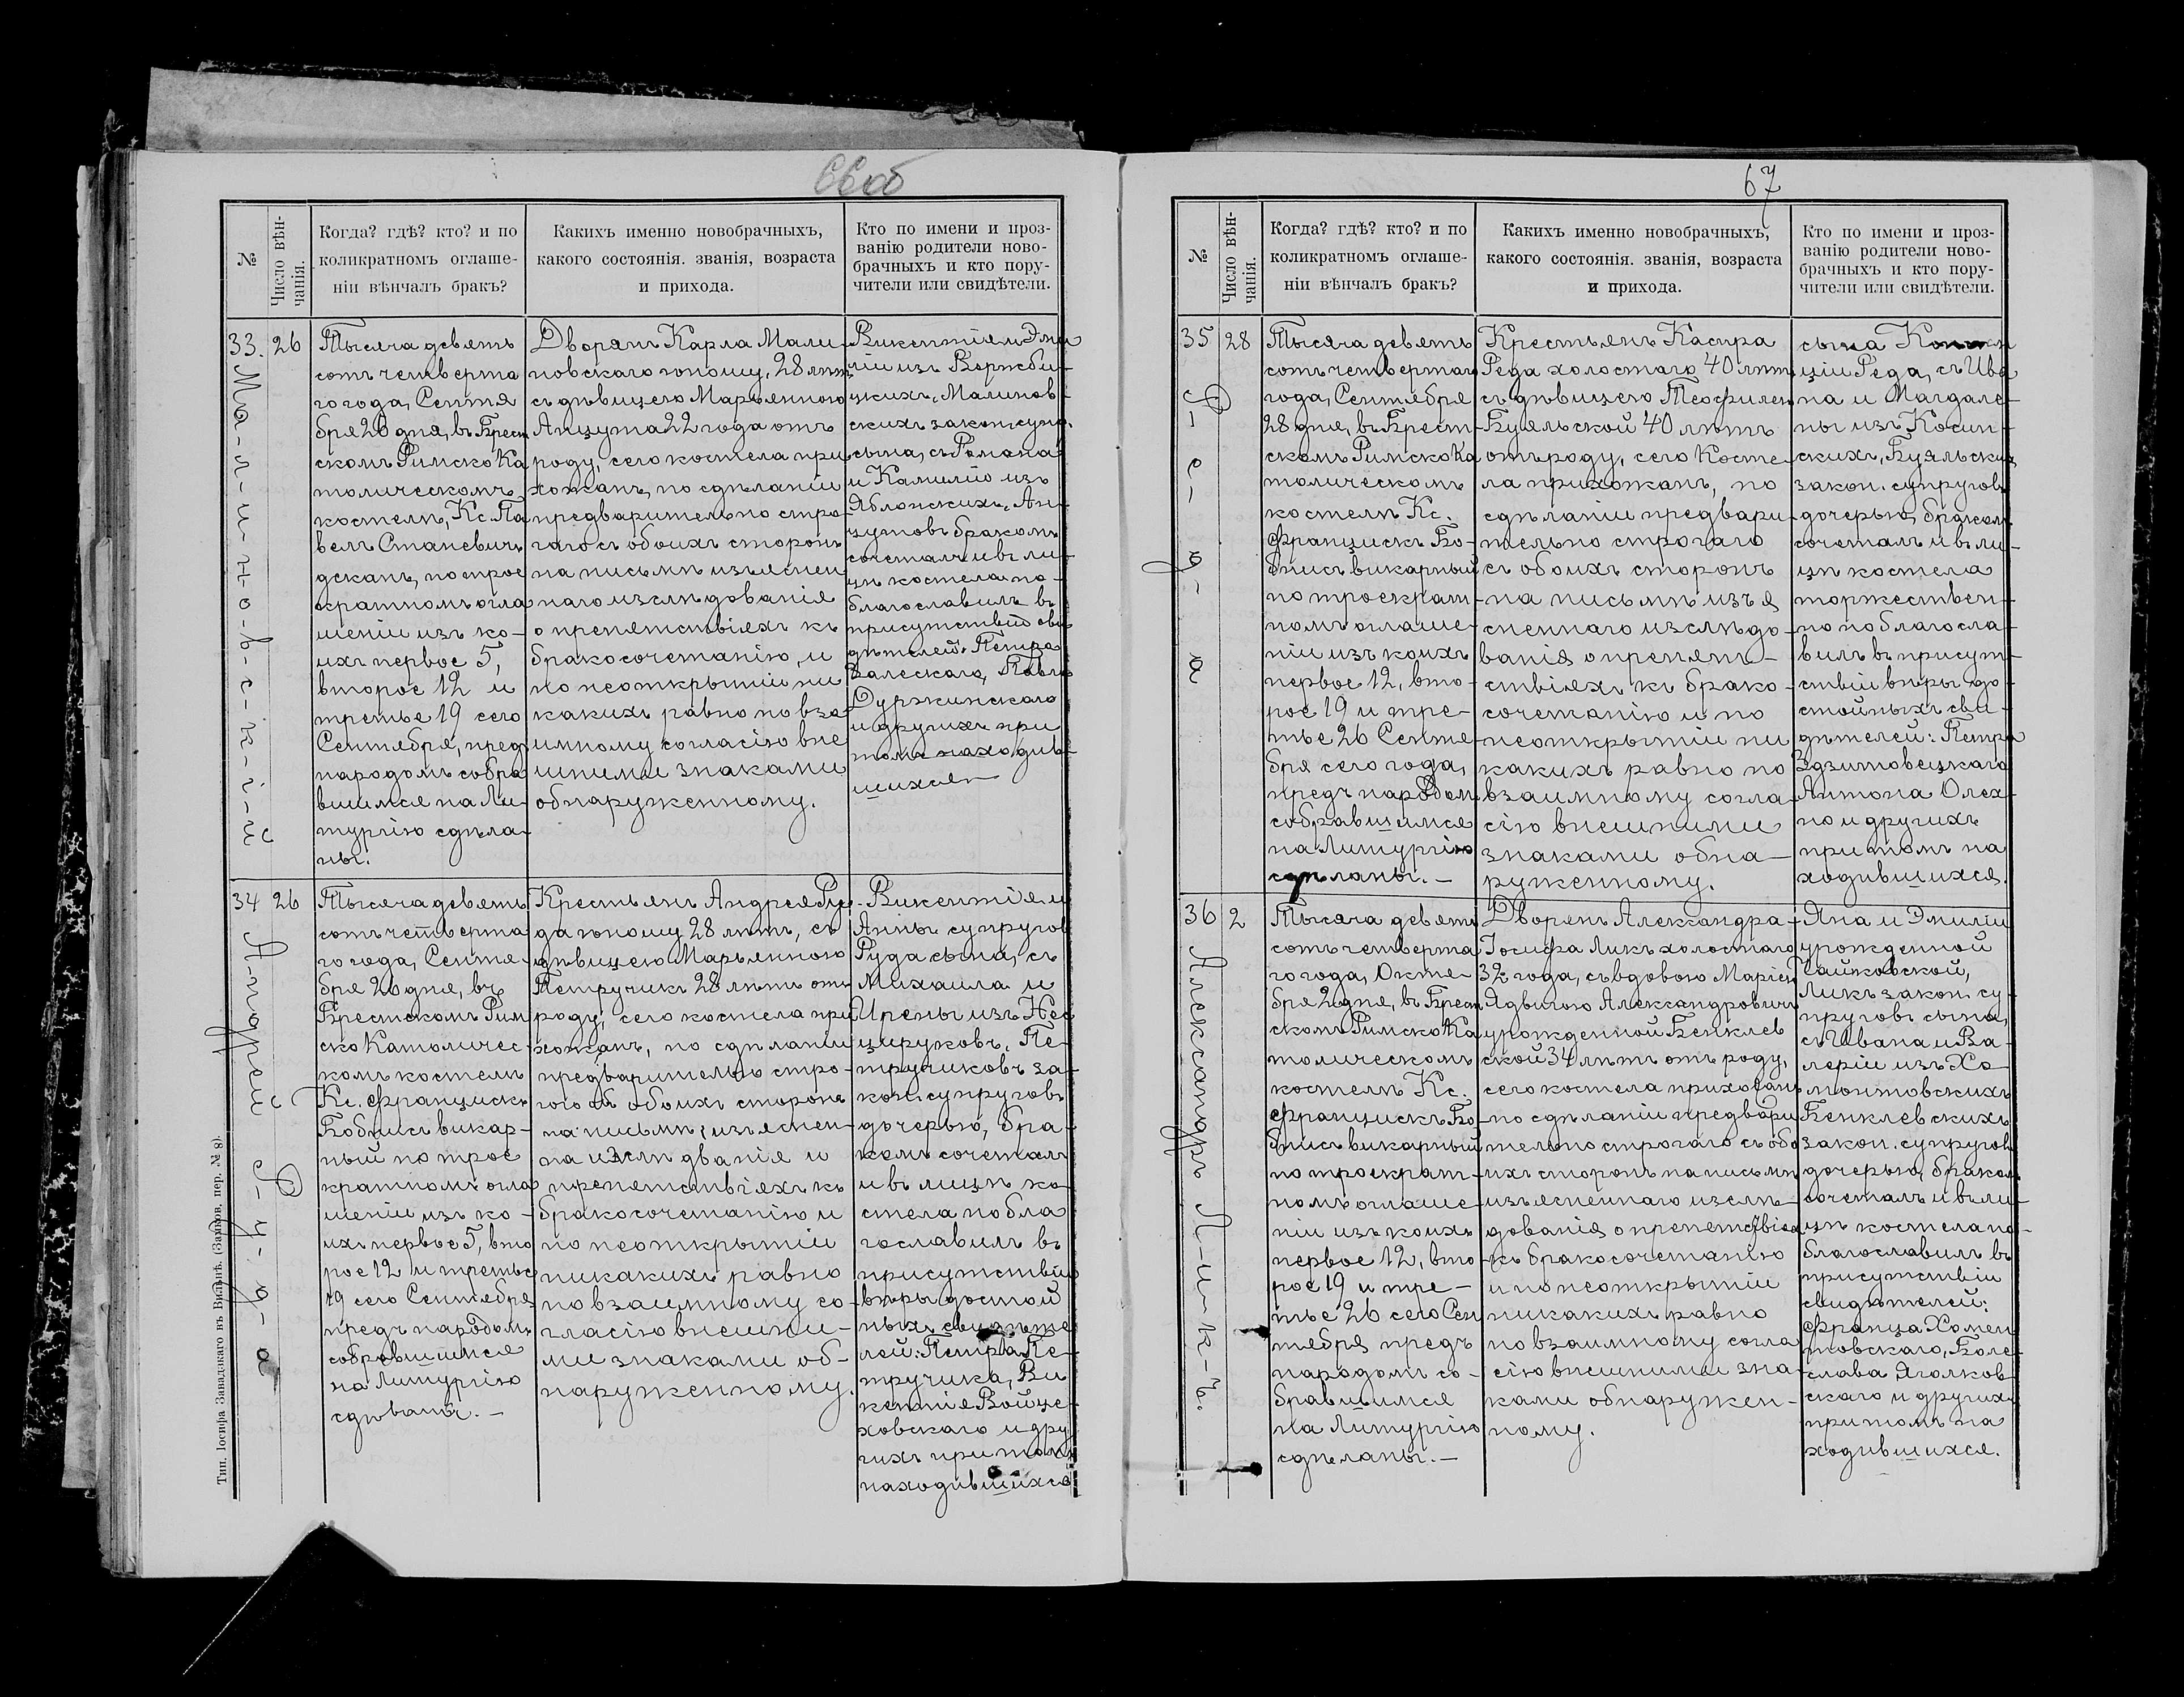 66об
№
Число вѣн-
чанія.
Когда? гдѣ? кто? и по
коликратномъ оглаше-
ніи вѣнчалъ бракъ?
Какихъ именно новобрачныхъ,
какого состоянія. званія, возраста
и прихода.
Кто по имени и проз-
ванію родители ново-
брачныхъ и кто пору-
чители или свидѣтели.
33.
26
Ма-л-и-н-о-в-с-к-і-й
Тысяча девять
сотъ четверта
го года, Сентя
бря 26 дня, въ Брест
скомъ Римско Ка
толическомъ
костелѣ, Кс. Па
велъ Станевичъ
деканъ, по трое
кратномъ огла
шеніи изъ ко-
ихъ первое 5,
второе 12 и
третье 19 сего
Сентября, пред
народомъ собра
вшимся на Ли-
тургію сдѣла-
ны.
Дворянъ Карла Мали-
новскаго юношу, 28 лѣтъ
съ дѣвицею Марьянною
Анцута 22 года отъ
роду, сего костела при
хожанъ, по сдѣланіи
предварительно стро-
гаго съ обоихъ сторонъ
на письмѣ изъяснен
наго изслѣдованія
о препятствіяхъ къ
бракосочетанію, и
по неоткрытіи ни
какихъ равно по вза-
имному согласію вне
шними знаками
обнаруженному.
Викентія и Эми
ліи изъ Вержби-
цкихъ, Малинов-
скихъ закон. супр.
сына, съ Романа
и Камилію изъ
Яблонскихъ, Ан-
цутовъ бракомъ
сочеталъ и въ ли-
цѣ костела по-
благославилъ въ
присутствіи сви
дѣтелей: Петра
Залескаго, Павла
Дуржинскаго
и другихъ при
томъ находив-
шихся
34
26
Андрей Р-у-д-а
Тысяча девять
сотъ четверта
го года, Сентя-
бря 26 дня, въ
Брестскомъ Рим
ско Католичес-
комъ костелѣ
Кс. Францискъ
Бобнисъ викар-
ный по трое
кратномъ огла
шеніи изъ ко-
ихъ первое 5, вто
рое 12 и третье
19 сего Сентября
предъ народомъ
собравшимся
на Литургію
сдѣваны.-
Крестьянъ Андрея Ру-
да юношу 28 лѣтъ, съ
дѣвицею Марьянною
Петручикъ 28 лѣтъ отъ
роду, сего костела при
хожанъ, по сдѣланіи
предварительно стро-
гого съ обоихъ сторонъ
на письмѣ, изъяснен-
на изслѣдванія и
препятствіяхъ къ
бракосочетанію и
по неоткрытіи
никакихъ равно
по взаимному со-
гласію внешни-
ми знаками об-
наруженному.
Викентія и
Анны супругов
Руда сына, съ
Михаила и
Ирены изъ Нес
цируковъ, Пе-
тручиковъ за-
кон. супруговъ
дочерью, бра-
комъ сочеталъ
и въ лицѣ ко-
стела побла
гославилъ въ
присутствіи
вѣры достой
ныхъ свидѣте
лей: Петра Пе-
тручика, Ви
кентія Войце-
ховскаго и дру
гихъ при томъ
находившихся
Тип. Іосифа Завадзкаго въ Вильнѣ. (Замков. пер. № 8).
67
№
Число вѣн-
чанія.
Когда? гдѣ? кто? и по
коликратномъ оглаше-
ніи вѣнчалъ бракъ?
Какихъ именно новобрачныхъ,
какого состоянія. званія, возраста
и прихода.
Кто по имени и проз-
ванію родители ново-
брачныхъ и кто пору-
чители или свидѣтели.
35
28
Р-е-д-а
Тысяча девять
сотъ четвертаго
года, Сентября
28 дня, въ Брест-
скомъ Римско Ка
толическомъ
костелѣ Кс.
Францискъ Бо-
бнисъ викарный
по троекрат-
номъ оглаше-
ніи изъ коихъ
первое 12, вто-
рое 19 и тре-
тье 26 Сентя-
бря сего года,
предъ народомъ
собравшимся
на Литургію
сдѣланы.-
Крестьянъ Каспра
Реда холостаго 40 лѣтъ
съ дѣвицею Теофилею
Буяльской 40 лѣтъ
отъ роду, сего Косте-
ла прихожанъ, по
сдѣланіи предвари-
тельно строгаго
съ обоихъ сторонъ
на письмѣ изъя
сненнаго изслѣдо-
ванія о препят-
ствіяхъ къ брако-
сочетанію и по
неоткрытіи ни
какихъ равно по
взаимному согла-
сію внешними
знаками обна-
руженному.
сына
ціи Реда, съ Ива
на и Магдале-
ны изъ Косин-
скихъ, Буяльских
закон. супруговъ
дочерью, бракомъ
сочеталъ и въ ли-
цѣ костела
торжествен-
но по благосла-
вилъ въ присут-
ствіи вѣры до-
стойныхъ сви-
дѣтелей: Петра
Здзитовецкаго
Антона Олех-
но и другихъ
при томъ на
ходившихся.
36
2
Александръ Л-и-к-ъ.
Тысяча девять
сотъ четверта
го года, Октя-
бря 2 дня, въ Брест
скомъ Римско Ка
толическомъ
костелѣ Кс.
Францискъ Бо
бнисъ викарный
по троекрат-
номъ оглаше-
ніи изъ коихъ
первое 12, вто-
рое 19 и тре-
тье 26 сего Сен
тября предъ
народомъ со-
бравшимся
на Литургію
сдѣланы.-
Дворянъ Александра-
Іосифа Ликъ холостаго
32 года, съ вдовою Маріею
Ядвигою Александровичъ
урожденной Бенклев
ской 34 лѣтъ отъ роду,
сего костела прихожанъ
по сдѣланіи предвари
тельно строгаго съ обо
ихъ сторонъ на письмѣ
изъясненнаго изслѣ-
дованія о препятствіях
къ бракосочетанію
и по неоткрытіи
никакихъ равно
по взаимному согла
сію внешними зна-
ками обнаружен-
ному.
Яна и Эмиліи
урожденной
Чайковской,
Ликъ закон. су-
пруговъ сына,
съ Ивана и Ва-
леріи изъ Хо-
монтовскихъ
Бенклевскихъ
закон. супругов
дочерью, бракомъ
сочеталъ и въ ли-
цѣ костела по-
благославилъ въ
присутствіи
свидѣтелей:
Франца Хомен
товскаго, Боле-
слава Яголков-
скаго и другихъ
при томъ на
ходившихся.